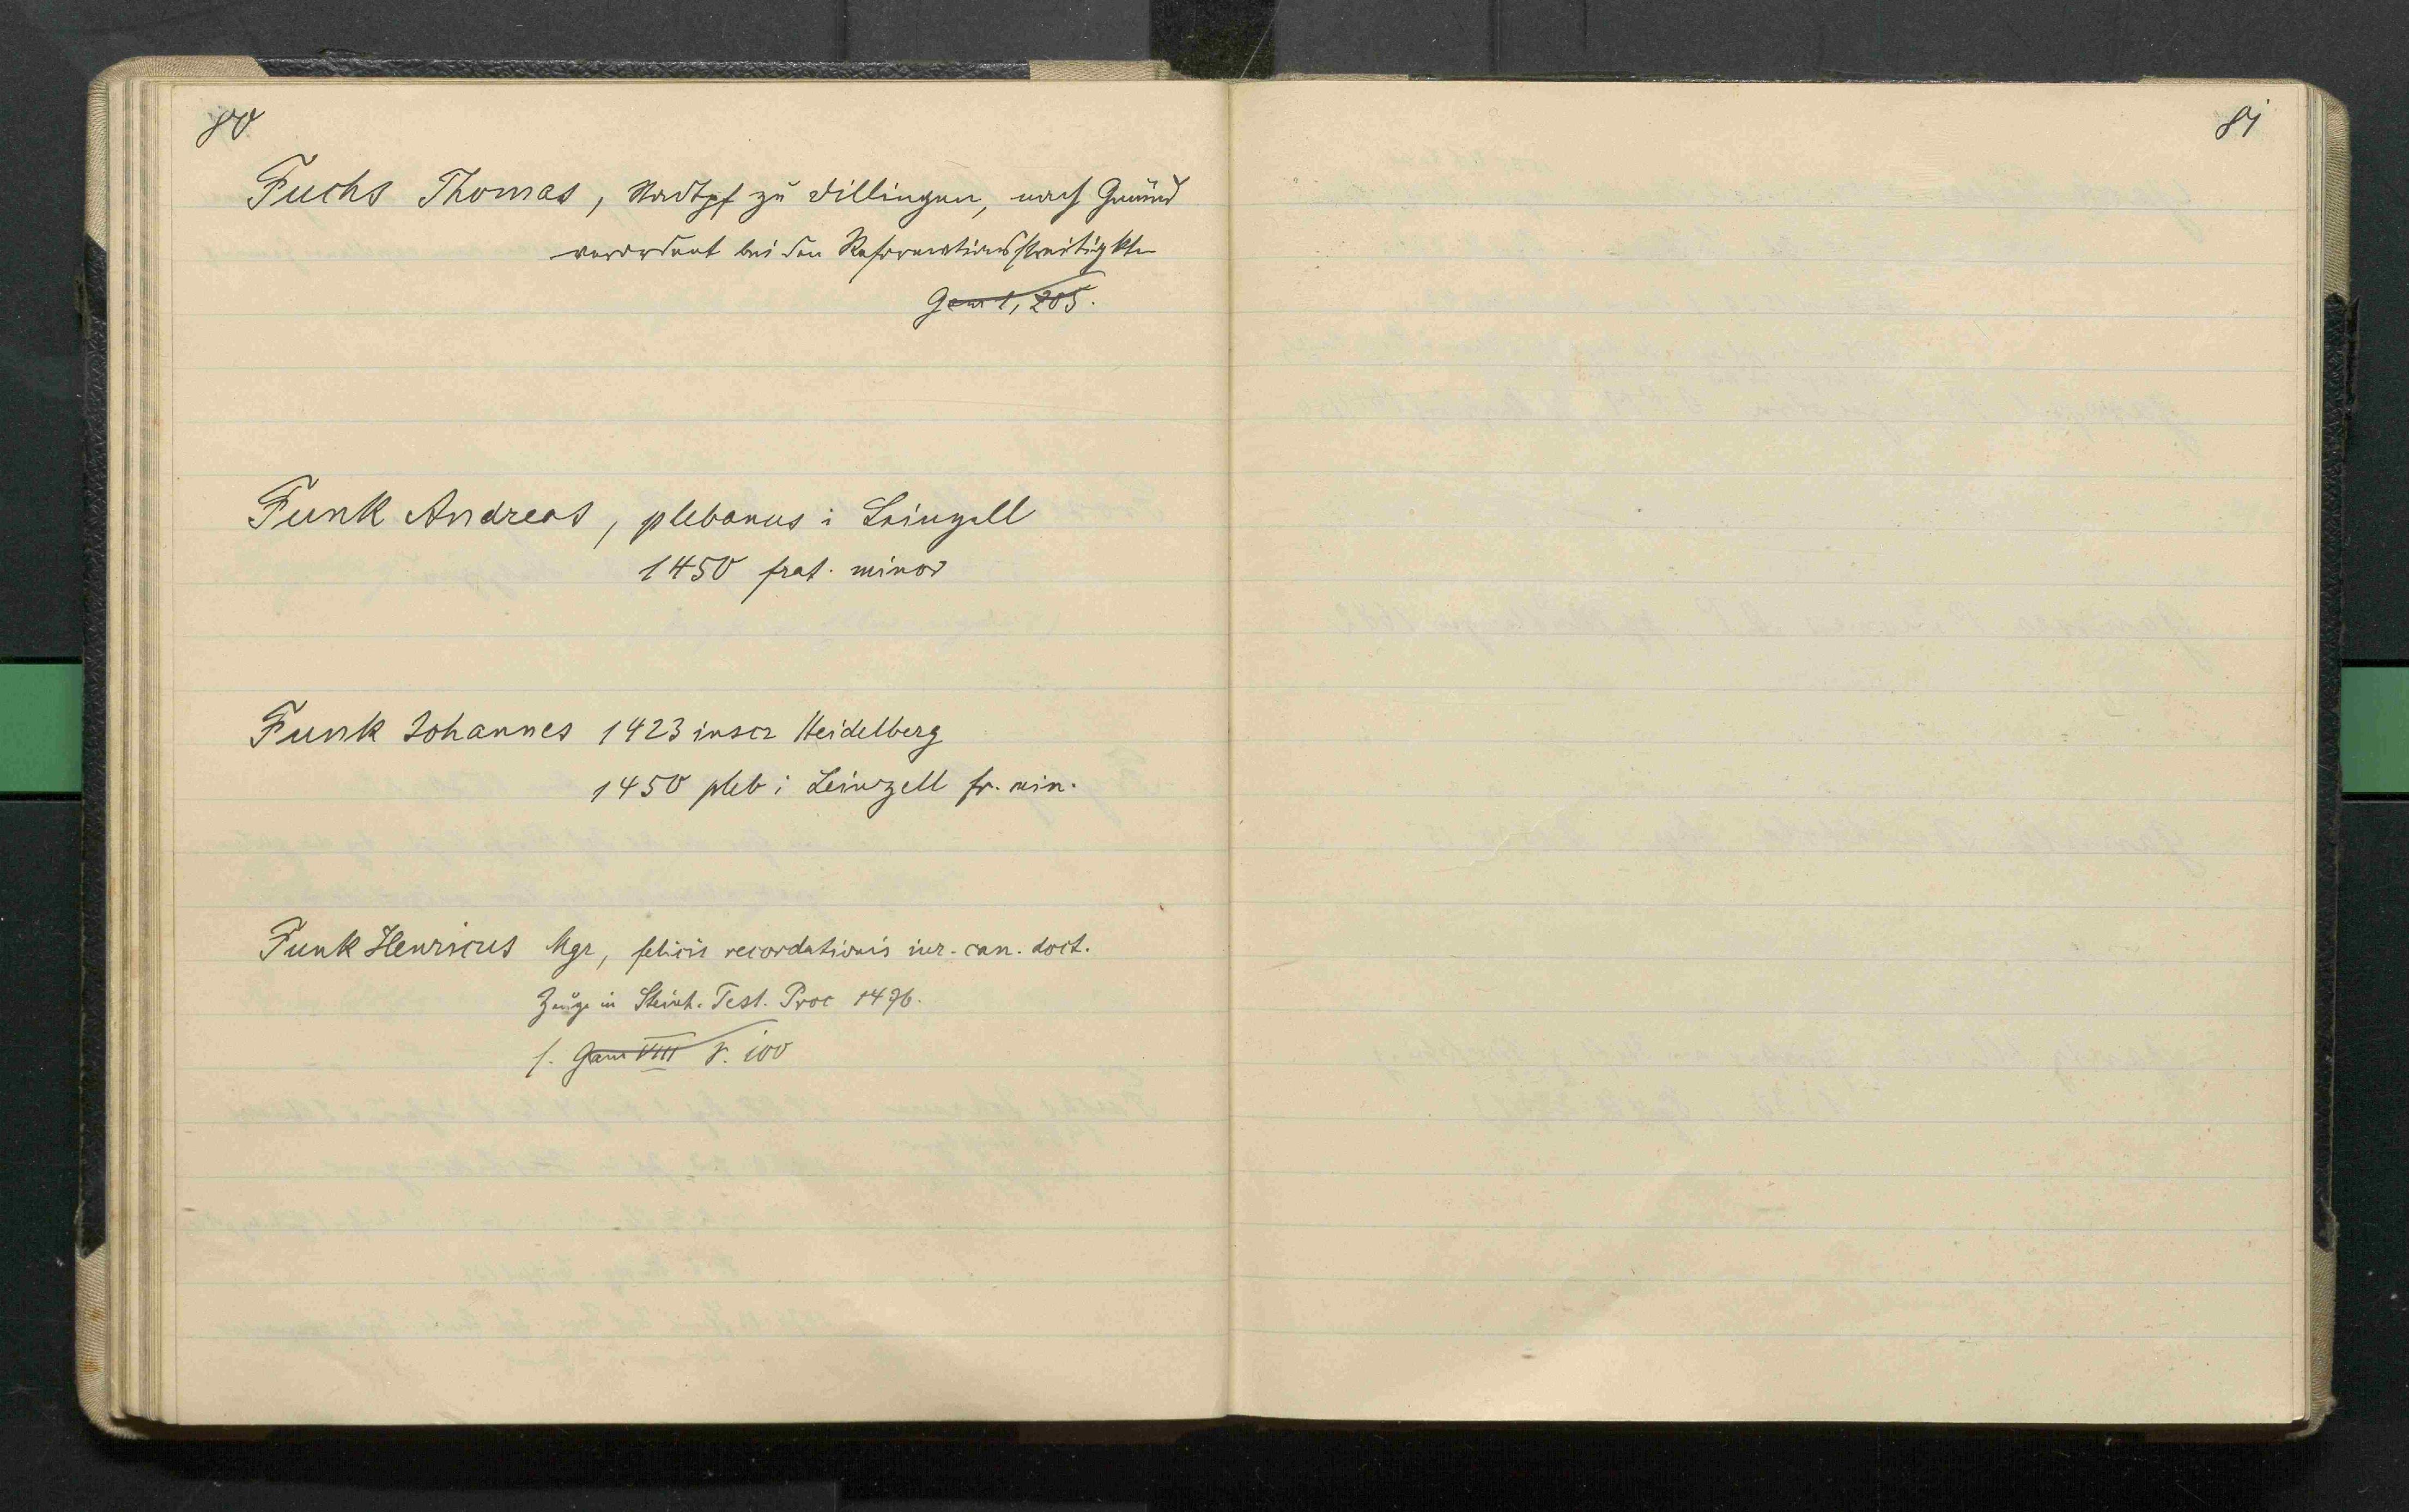 80
Fuchs Thomas, Stadtpf zu Dillingen, nach Gmünd
verordnet bei den Reformationsstreitigkten
Gem 1, 205.
Funk Andreas, plebanus i Leinzell
1450 frat. minor
Funk Johannes 1423 inscr Heidelberg
1450 pleb i Leinzell fr. min.
Funk Henricus Mgr, felicis recordationis iur. can. doct.
Zeuge in Steinh. Test. Proc 1476.
s. Gam VIII S. 100
81